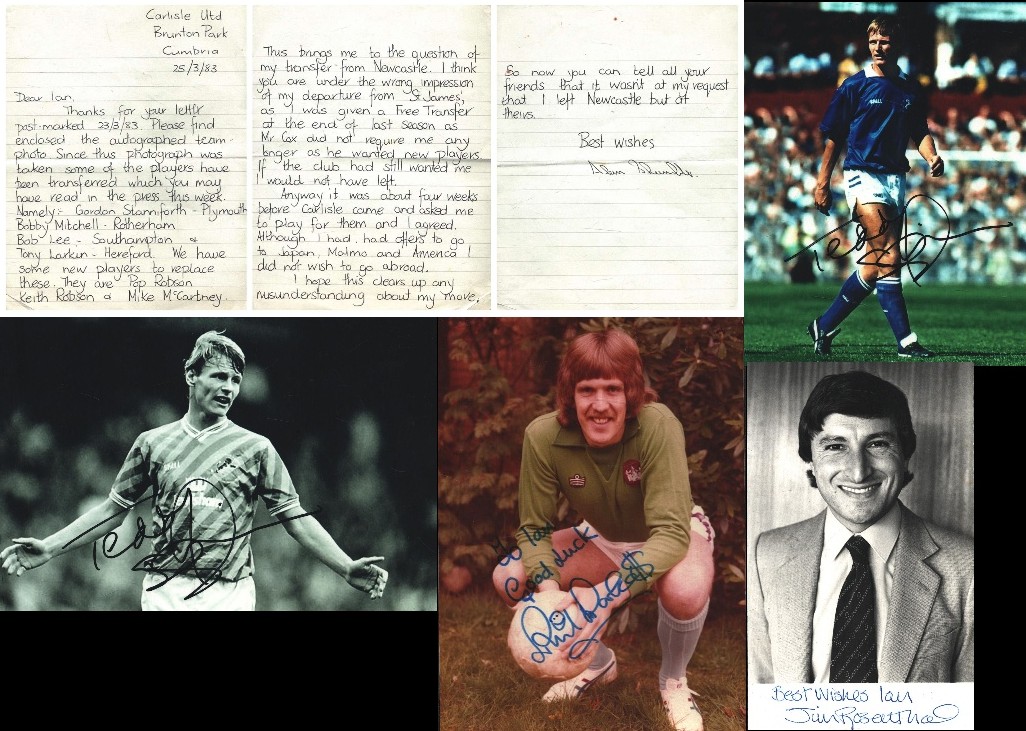 Carlisle Utd
Brunton Park
Cumbria
25/3/83
Dear Ian,
Thanks for your letter
post-marked 23/3/83. Please find
enclosed the autographed team-
photo. Since this photograph was
taken some of the players have
been transferred which you may
have read in the press this week.
Namely:- Gordon Stanniforth - Plymouth
Bobby Mitchell - Rotherham
Bob Lee - Southampton &
Tony Larkin - Hereford. We have
some new players to replace
these. They are Pop Robson
Keith Robson & Mike McCartney.
This brings me to the question of
my transfer from Newcastle. I think
you are under the wrong impression
of my departure from St. James,
as I was given a Free Transfer
at the end of last season as
Mr Cox did not require me any
longer as he wanted new players.
If the club had still wanted me
I would not have left.
Anyway it was about four weeks
before Carlisle came and asked me
to play for them and I agreed.
Although I had, had offers to go
to Japan, Malmo and America I
did not wish to go abroad.
I hope this clears up any
misunderstanding about my move,
So now you can tell all your
friends that it wasn't at my request
that I left Newcastle but at
theirs.
Best wishes
Alan Shoulder
Teddy
Teddy
To Ian
Good luck
Phil Parkes
Best Wishes Ian
Jim Rosenthal